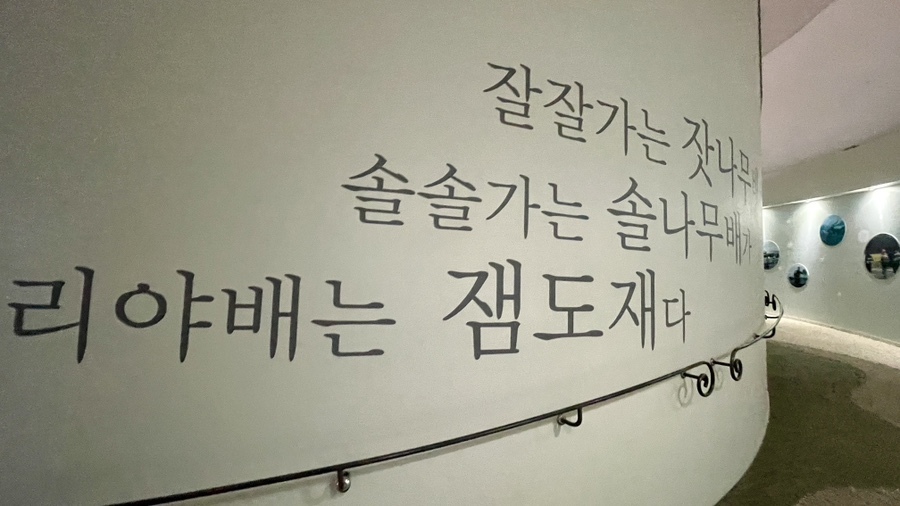 잘잘가는 잣나무
솔솔가는 솔나무배가
리야배는 잼도재다